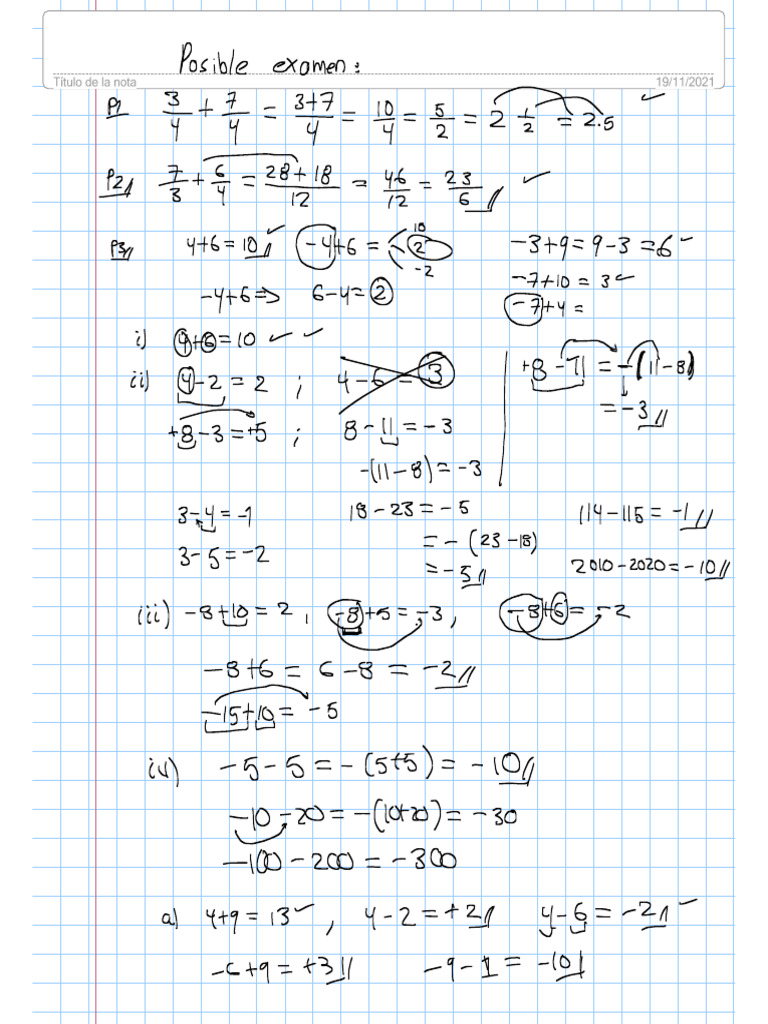 Posible examen:
Título de la nota 19/11/2021
P1 3/4 + 7/4 = (3+7)/4 = 10/4 = 5/2 = 2 1/2 = 2.5 ✓
P2// 7/3 + 6/4 = (28+18)/12 = 46/12 = 23/6 // ✓
P3// 4+6 = 10// ✓ -4+6 = 10 2 -2 -3+9 = 9-3 = 6 ✓
-4+6 => 6-4 = 2 -7+10 = 3 ✓
-7+4 =
i) 4+6 = 10 ✓ ✓
ii) 4-2 = 2 ; 4-6 = 3 +8-11 = -(11-8)
+8-3 = +5 ; 8-11 = -3 = -3//
-(11-8) = -3
3-4 = -1 18-23 = -5 114-115 = -1//
3-5 = -2 = -(23-18) 2010-2020 = -10//
= -5//
iii) -8+10 = 2, -8+5 = -3, -8+6 = -2
-8+6 = 6-8 = -2//
-15+10 = -5
iv) -5-5 = -(5+5) = -10//
-10-20 = -(10+20) = -30
-100-200 = -300
a) 4+9 = 13 ✓, 4-2 = +2// 4-6 = -2// ✓
-6+9 = +3// -9-1 = -10//